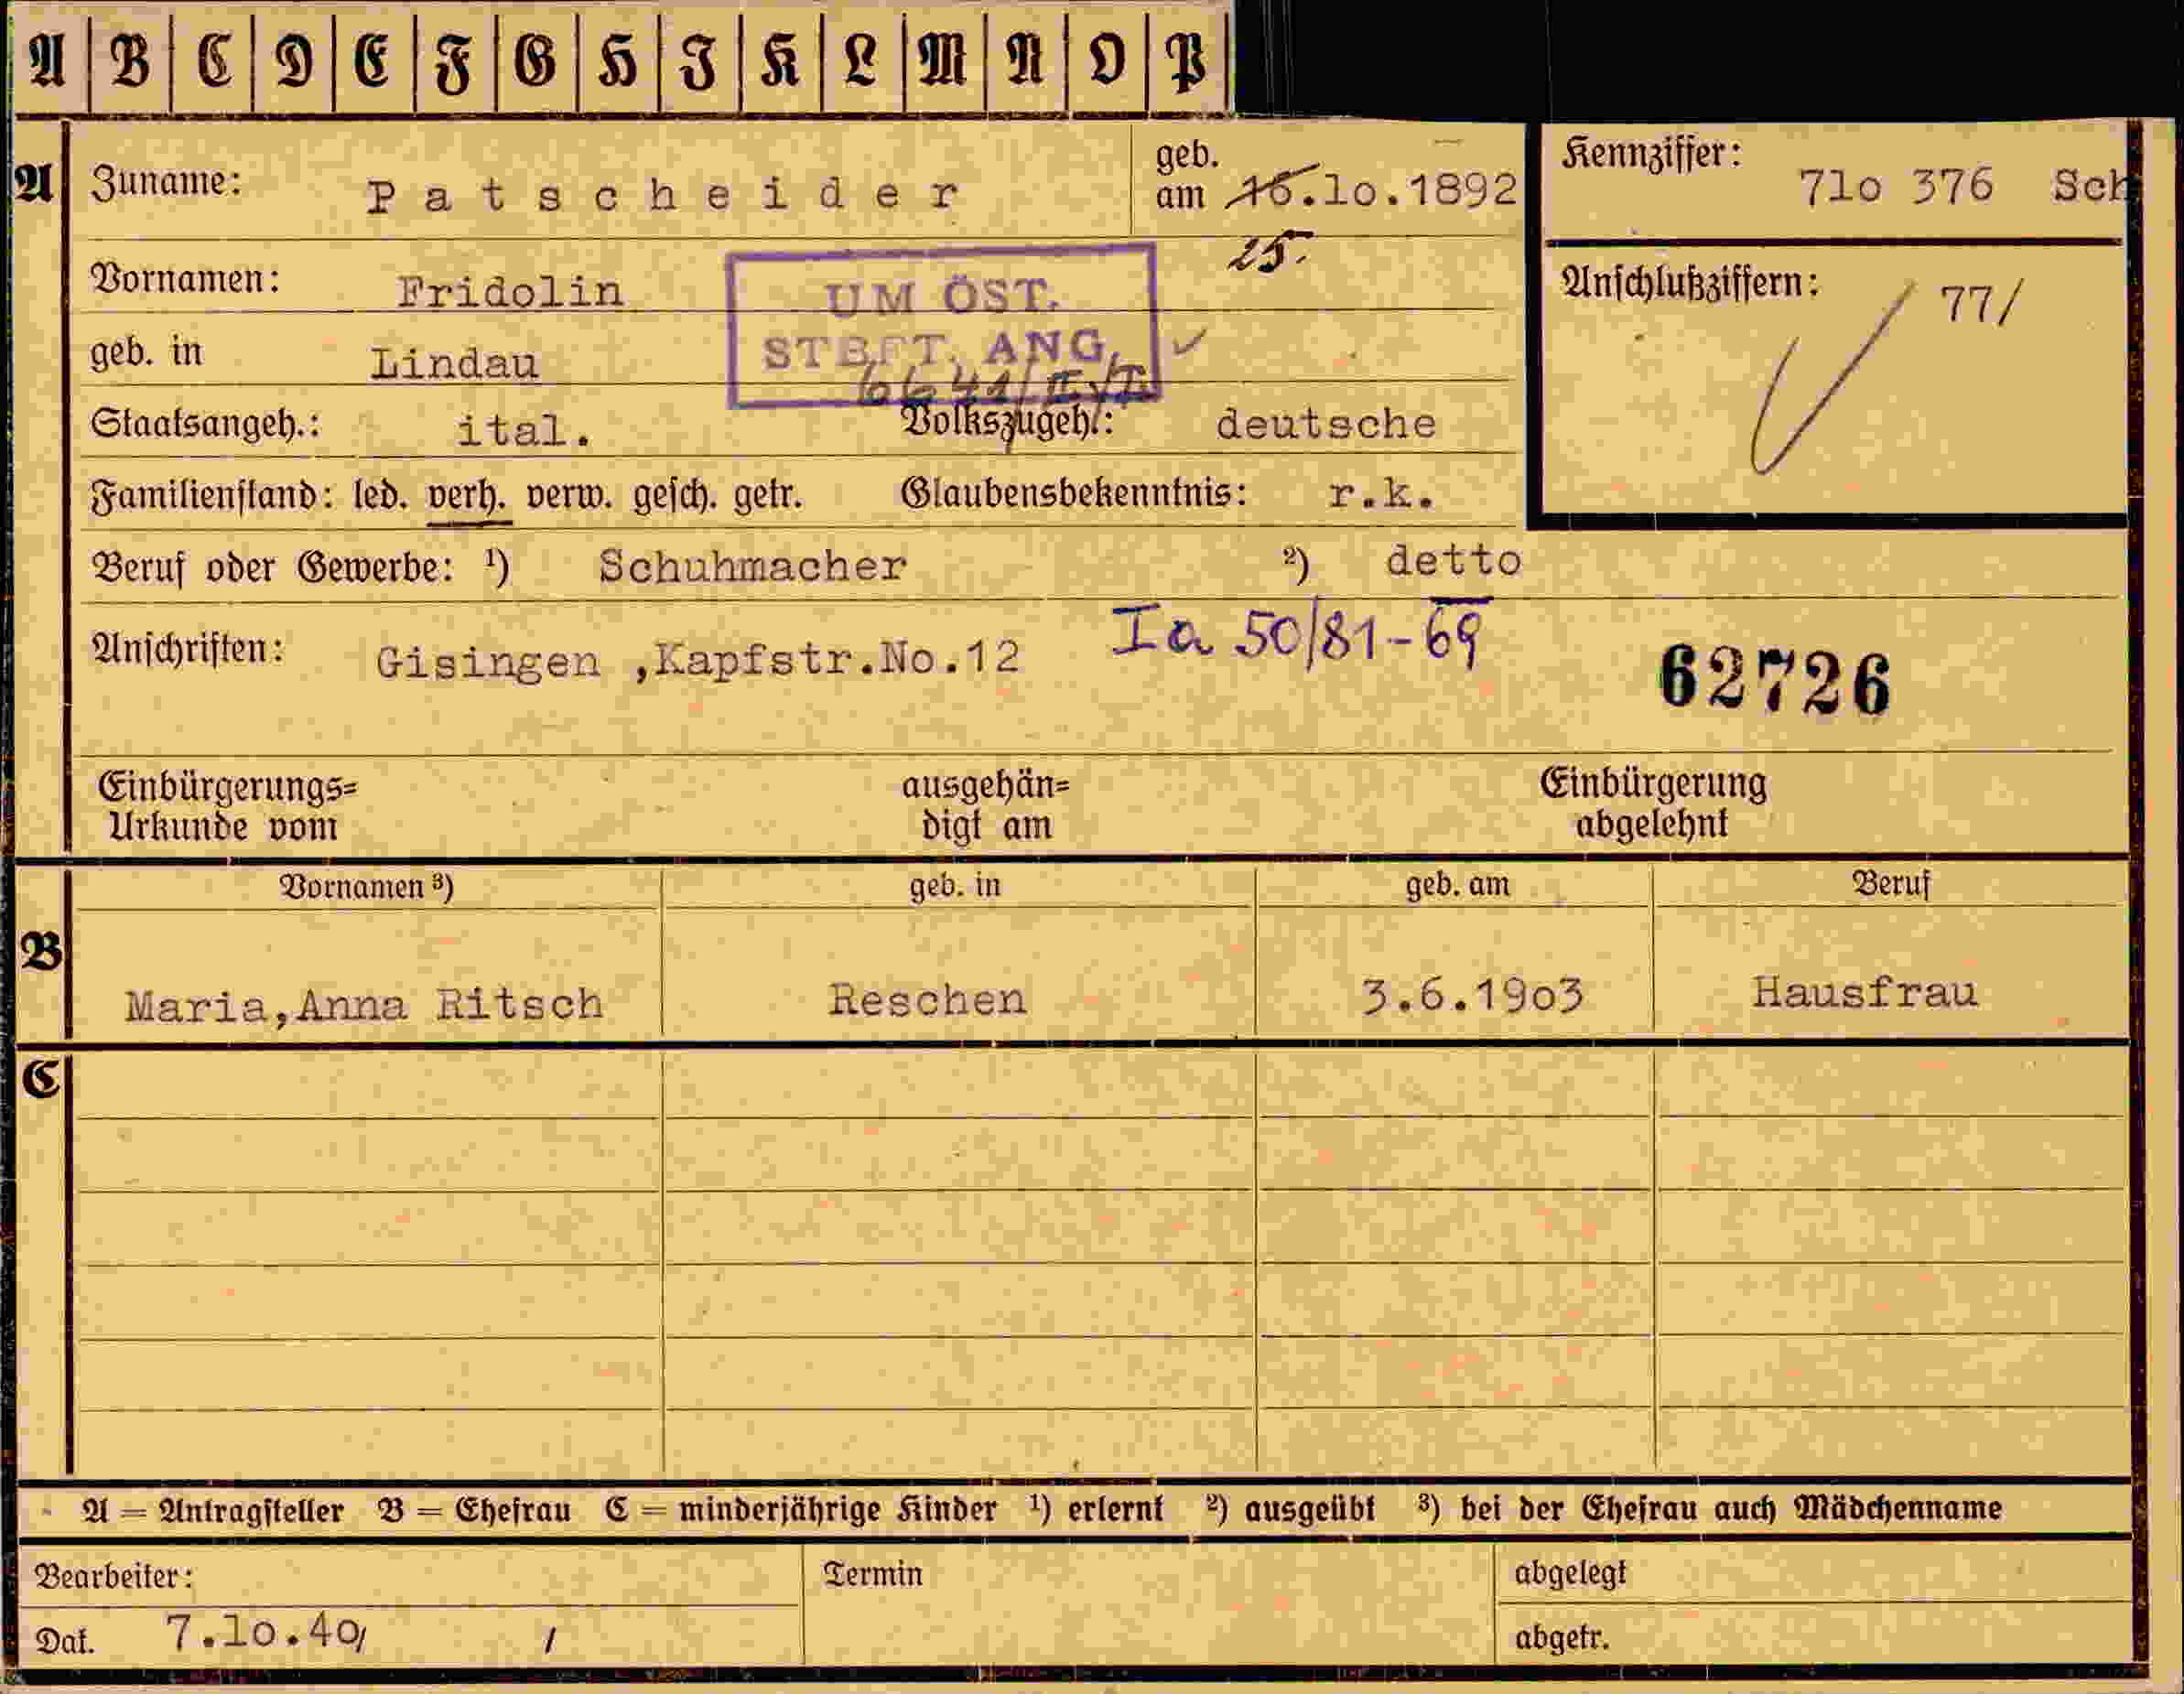 A B C D E F G H J K L M N O P
A Zuname: Patscheider geb. am 16.lo.1892 25. Kennziffer: 71o 376 Sch
Vornamen: Fridolin
UM ÖST.
STBFT. ANG.
Anschlußziffern: 77/
geb. in Lindau
Staatsangeh.: ital. Volkszugeh.: deutsche
Familienstand: led. verh. verw. gesch. getr. Glaubensbekenntnis: r.k.
Beruf oder Gewerbe: ¹) Schuhmacher ²) detto
Anschriften: Gisingen ,Kapfstr.No.12 Ia 50/81-69 62726
Einbürgerungs=
Urkunde vom
ausgehän=
digt am
Einbürgerung
abgelehnt
Vornamen ³) geb. in geb. am Beruf
B Maria,Anna Ritsch Reschen 3.6.19o3 Hausfrau
C
A = Antragsteller B = Ehefrau C = minderjährige Kinder ¹) erlernt ²) ausgeübt ³) bei der Ehefrau auch Mädchenname
Bearbeiter: Termin abgelegt
Dat. 7.lo.40/ / abgetr.